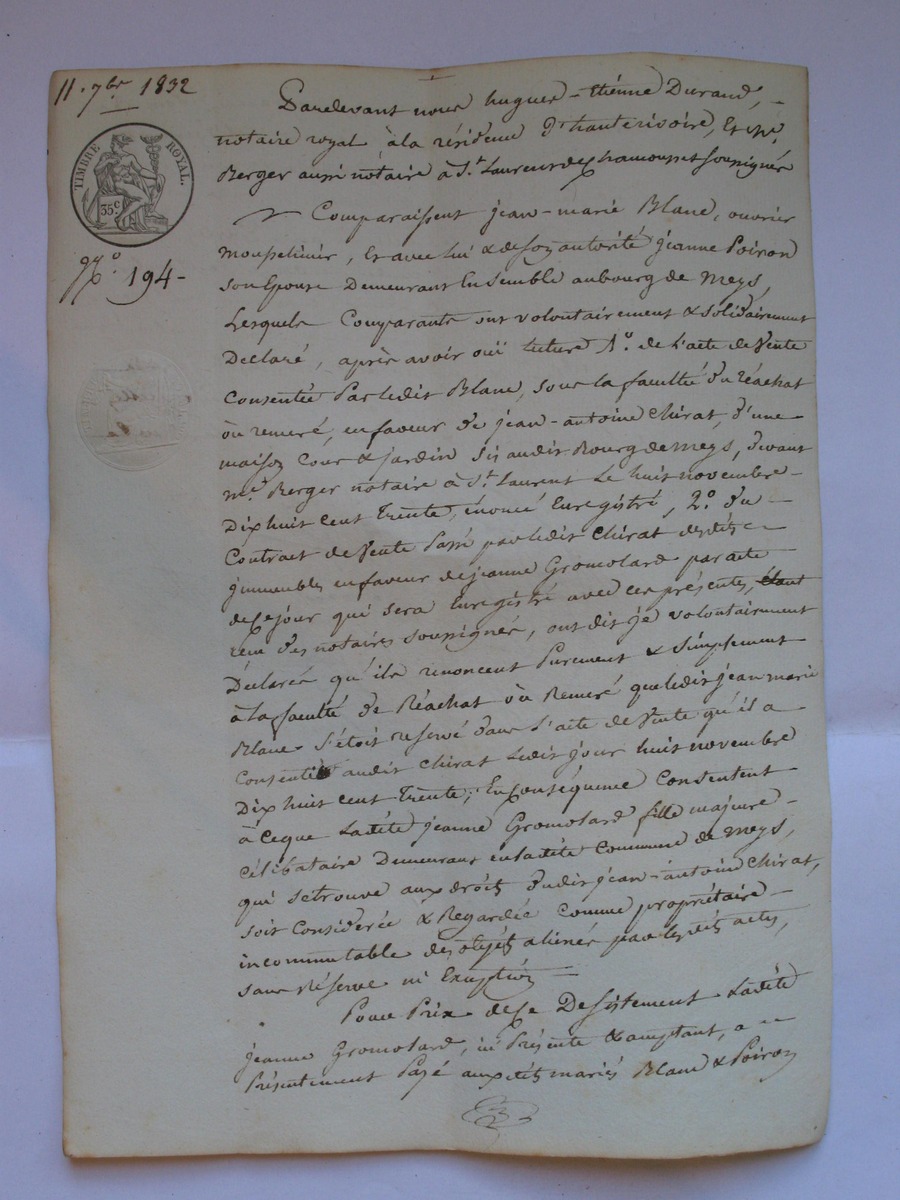 11. 7bre 1832
TIMBRE ROYAL.
35 c
No. 194-
Pardevant nous hugues-étiénne Durand,
notaire royal à la résidence d'hauterivoire, Et Me.
Berger aussi nótaire à St. Laurent de Chamousset soussignés
Comparaissent jean-marie Blanc, ouvrier
mousselinier, Et avec lui & de son autorité jeanne Poiron
son Epouse Demeurant Ensemble au bourg de Meys,
Lesquels Comparants ont volontairement & solidairement
Déclaré, aprés avoir oüi lecture 1o. de l'acte de Vente
Consentée Par ledit Blanc, sous la faculté du Réachat
ou remeré, en faveur de jean-antoine Chirat, d'une
maison Cour & jardin sis audit Bourg de Meys, devant
me. Berger notaire à St. Laurent Le huit novembre
Dix huit cent Trente, énoncé Enregistré, 2o. du
Contract de Vente Passé par ledit Chirat desdits
immeubles en faveur de jeanne Gromolard par acte
de ce jour qui sera Enregistré avec ces présentes,
recu des notaires soussignés, ont dis-je volontairement
Déclarés qu'ils renoncent Purement & Simplement
à la faculté de Réachat ou Remeré que ledit jean marie
Blanc s'étoit reservé dans l'acte de Vente qu'il a
Consenti audit Chirat Ledit jour huit novembre
Dix huit cent Trente; En Conséquence Consentent
à ceque Ladite jeanne Gromolard fille majeure
célibataire Demeurant en ladite Commune de Meys,
qui se trouve aux droits dudit jean-antoine Chirat,
soit Considerée & Regardée Comme propriétaire
incommutable des objets aliénés par lesdits actes,
sans Réserve ni Exception
Pour Prix de ce Desistement Ladite
jeanne Gromolard, ici Présente & acceptant, a
Présentement Payé auxdits mariés Blanc & Poiron